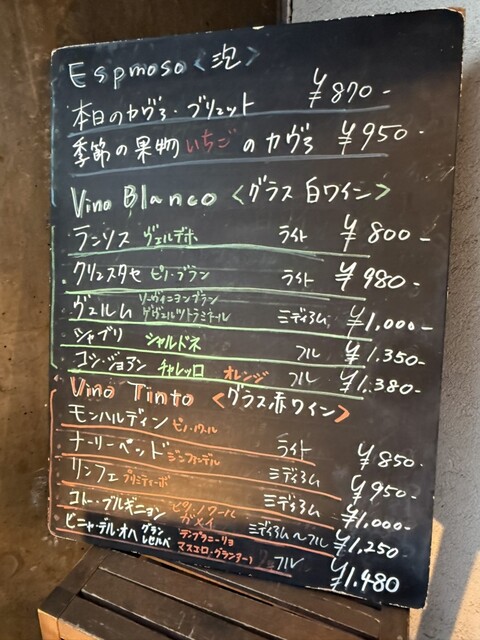 Espmoso <泡>
本日のカヴァ・ブリュット ¥870-
季節の果物いちごのカヴァ ¥950-
Vino Blanco <グラス白ワイン>
ランソス ヴェルデホ ライト ¥800-
クリュスタセ ピノ・ブラン ライト ¥980-
ヴェルム ソーヴィニヨンブラン ゲヴェルツトラミネール ミディアム ¥1,000-
シャブリ シャルドネ フル ¥1,350-
コン・ジョアン チャレッロ オレンジ フル ¥1,380-
Vino Tinto <グラス赤ワイン>
モンハルディン ピノ・ノワール ライト ¥850-
ナーリーヘッド ジンファンデル ミディアム ¥950-
リンフェ プリミティーボ ミディアム ¥1,000-
コトー・ブルギニョン ピノ・ノワール ガメイ ミディアム〜フル ¥1,250
ビニャ・デル・オハ グランレセルバ テンプラニーリョ マスエロ・グランチアーノ フル ¥1,480